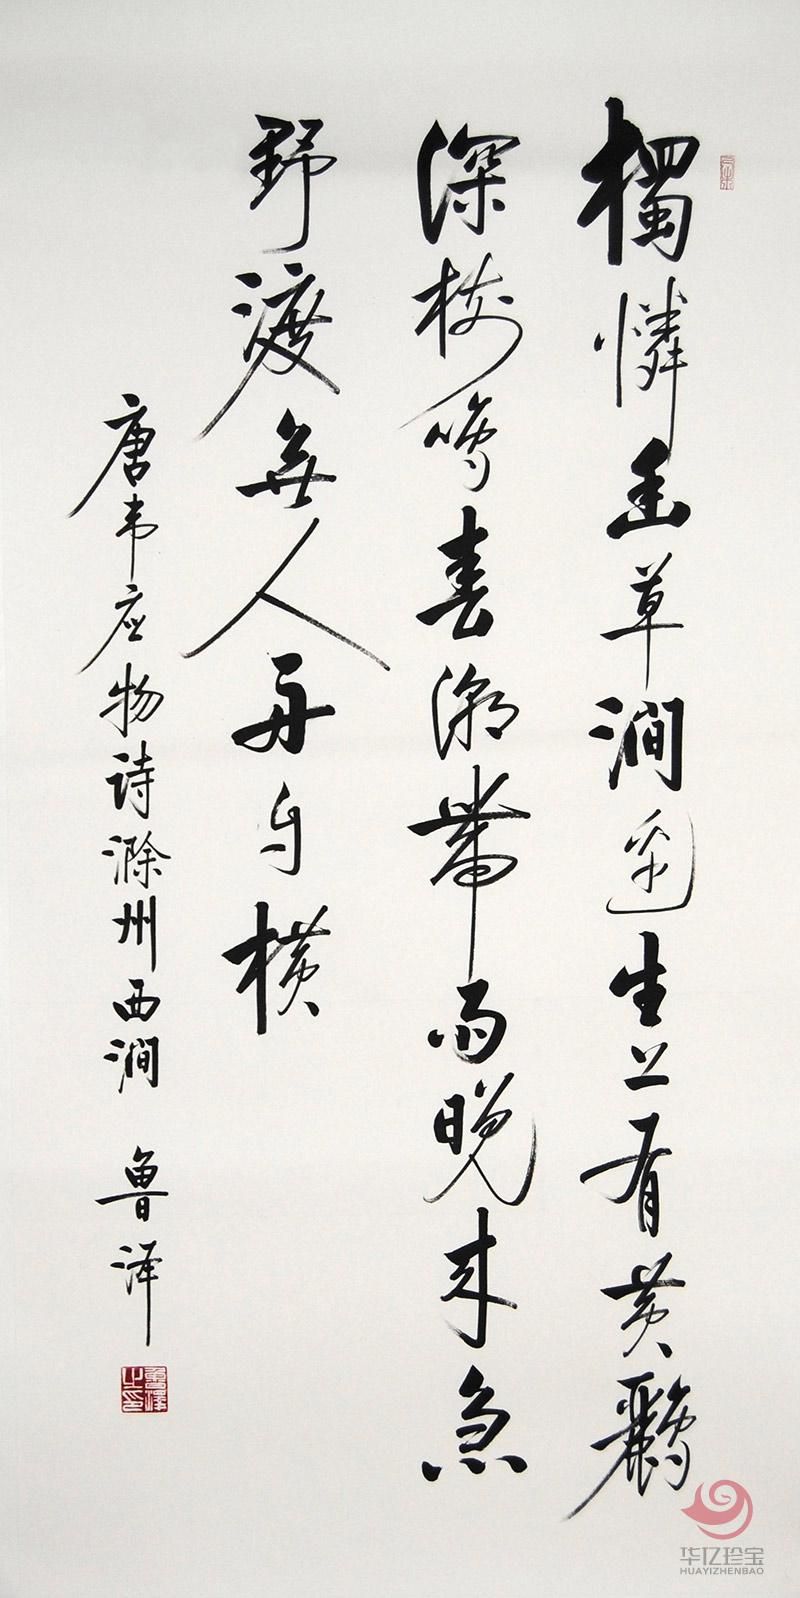 獨憐幽草澗邊生上有黄鸝
深樹鳴春潮帶雨晚来急
野渡無人舟自横
唐韦应物诗滁州西涧 鲁泽
魯澤之印
华亿珍宝
HUAYIZHENBAO